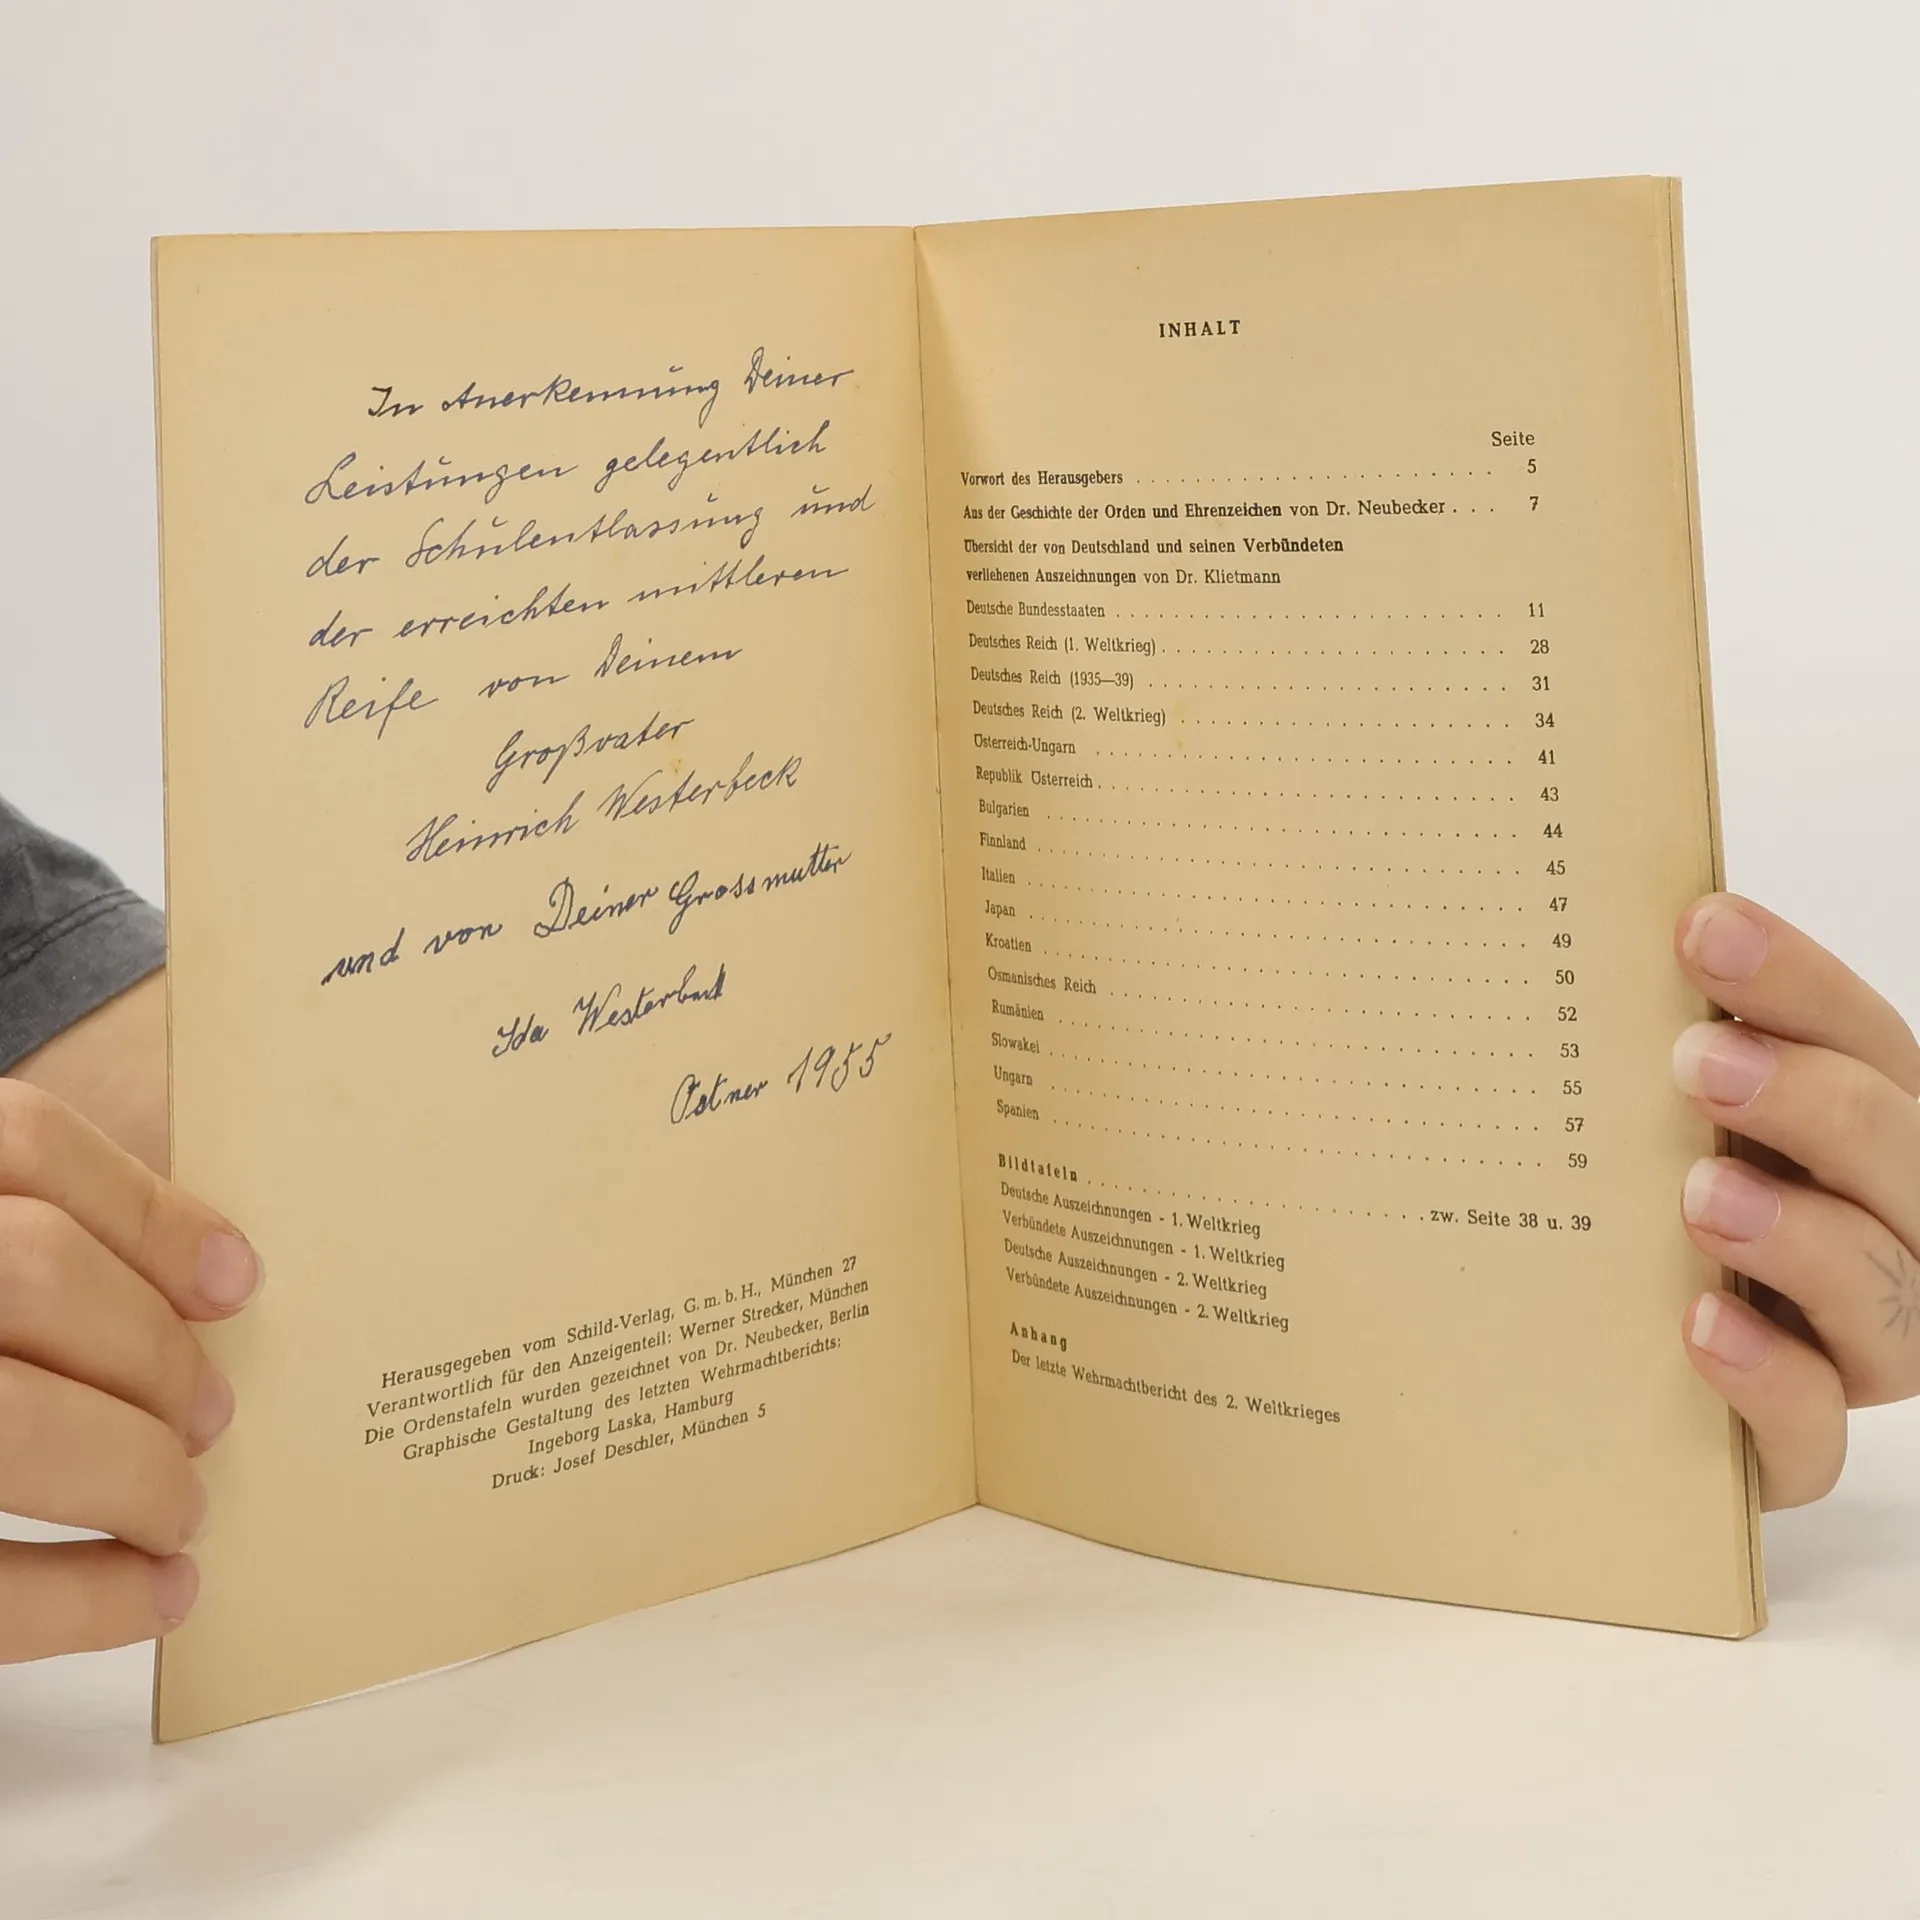 In Anerkennung Deiner
Leistungen gelegentlich
der Schulentlassung und
der erreichten mittleren
Reife von Deinem
Großvater
Heinrich Westerbeck
und von Deiner Grossmutter
Ida Westerbeck
Ostner 1955
Herausgegeben vom Schild-Verlag, G. m. b. H., München 27
Verantwortlich für den Anzeigenteil: Werner Strecker, München
Die Ordenstafeln wurden gezeichnet von Dr. Neubecker, Berlin
Graphische Gestaltung des letzten Wehrmachtberichts:
Ingeborg Laska, Hamburg
Druck: Josef Deschler, München 5
INHALT
Seite
Vorwort des Herausgebers . . . . . . . . . . . . . . . . . . . . . 5
Aus der Geschichte der Orden und Ehrenzeichen von Dr. Neubecker . . . 7
Übersicht der von Deutschland und seinen Verbündeten
verliehenen Auszeichnungen von Dr. Klietmann
Deutsche Bundesstaaten . . . . . . . . . . . . . . . . . . . . . 11
Deutsches Reich (1. Weltkrieg) . . . . . . . . . . . . . . . . . . . . . 28
Deutsches Reich (1935—39) . . . . . . . . . . . . . . . . . . . . . 31
Deutsches Reich (2. Weltkrieg) . . . . . . . . . . . . . . . . . . . . . 34
Österreich-Ungarn . . . . . . . . . . . . . . . . . . . . . 41
Republik Österreich . . . . . . . . . . . . . . . . . . . . . 43
Bulgarien . . . . . . . . . . . . . . . . . . . . . 44
Finnland . . . . . . . . . . . . . . . . . . . . . 45
Italien . . . . . . . . . . . . . . . . . . . . . 47
Japan . . . . . . . . . . . . . . . . . . . . . 49
Kroatien . . . . . . . . . . . . . . . . . . . . . 50
Osmanisches Reich . . . . . . . . . . . . . . . . . . . . . 52
Rumänien . . . . . . . . . . . . . . . . . . . . . 53
Slowakei . . . . . . . . . . . . . . . . . . . . . 55
Ungarn . . . . . . . . . . . . . . . . . . . . . 57
Spanien . . . . . . . . . . . . . . . . . . . . . 59
Bildtafeln . . . . . . . . . . . . . . . . . . . . . zw. Seite 38 u. 39
Deutsche Auszeichnungen - 1. Weltkrieg
Verbündete Auszeichnungen - 1. Weltkrieg
Deutsche Auszeichnungen - 2. Weltkrieg
Verbündete Auszeichnungen - 2. Weltkrieg
Anhang
Der letzte Wehrmachtbericht des 2. Weltkrieges